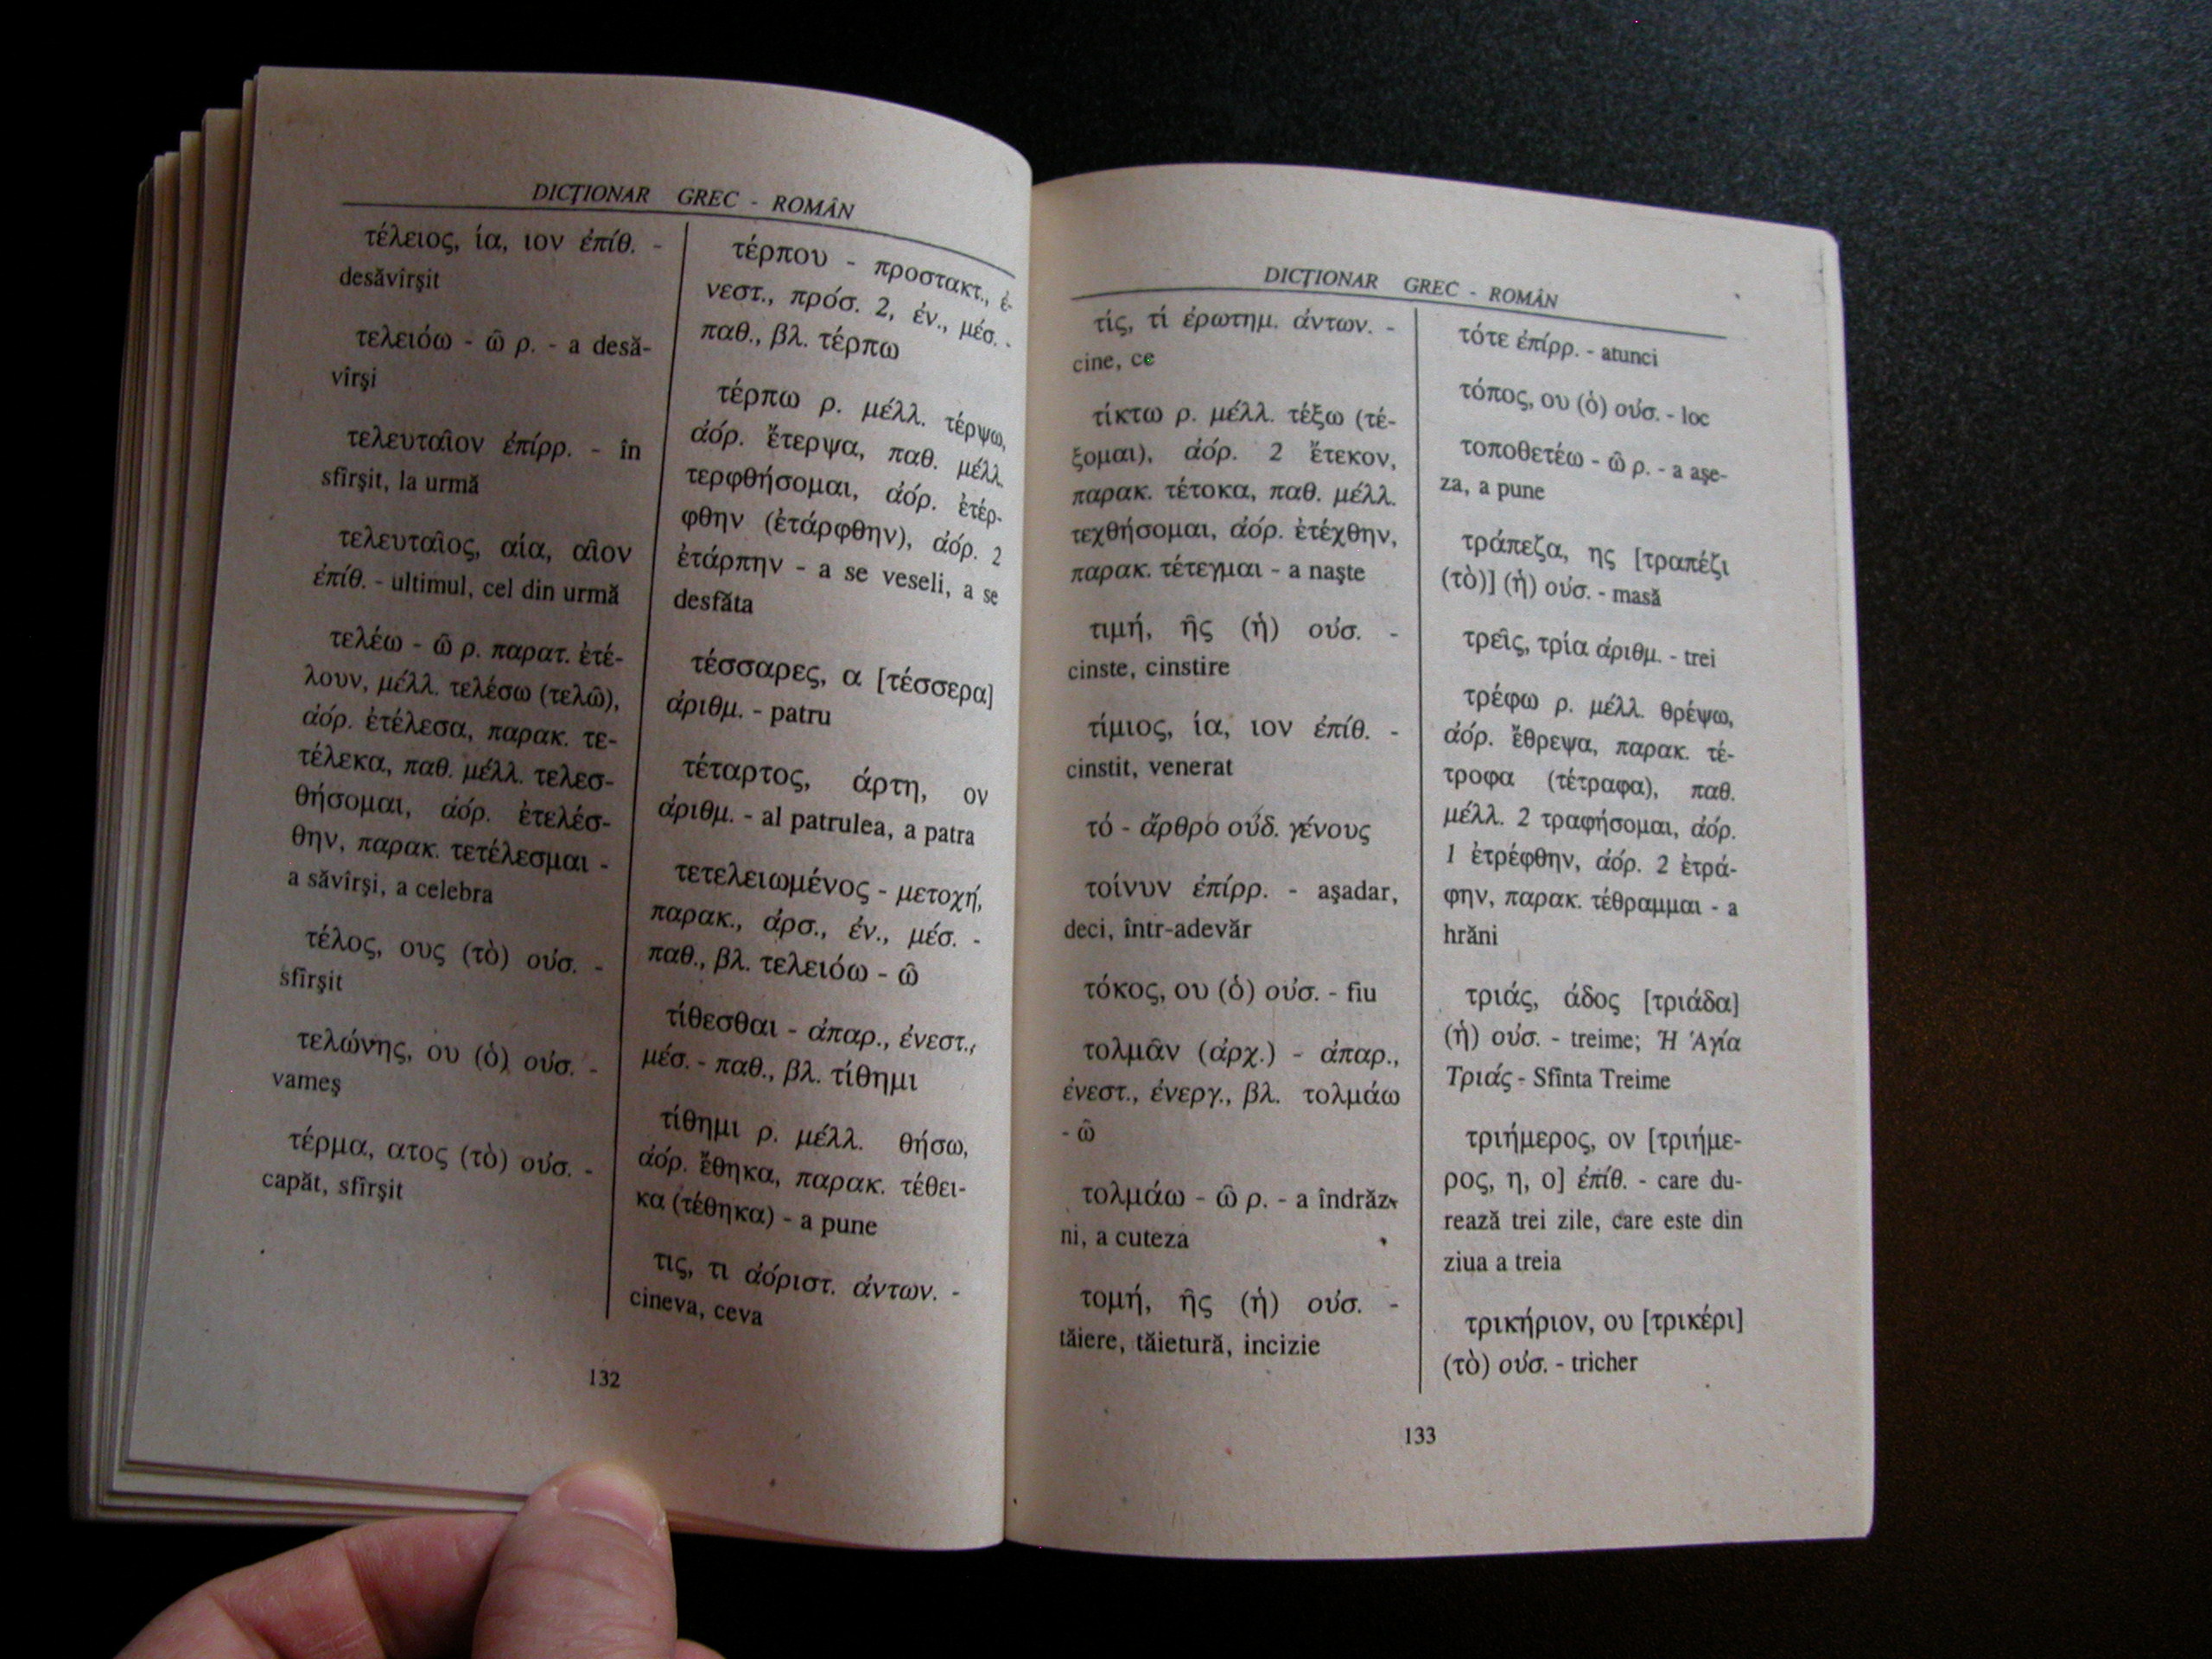 DICŢIONAR GREC - ROMÂN
τέλειος, ία, ιον ἐπίθ. -
desăvîrşit
τελειόω - ῶ ρ. - a desă-
vîrşi
τελευταῖον ἐπίρρ. - în
sfîrşit, la urmă
τελευταῖος, αία, αῖον
ἐπίθ. - ultimul, cel din urmă
τελέω - ῶ ρ. παρατ. ἐτέ-
λουν, μέλλ. τελέσω (τελῶ),
ἀόρ. ἐτέλεσα, παρακ. τε-
τέλεκα, παθ. μέλλ. τελεσ-
θήσομαι, ἀόρ. ἐτελέσ-
θην, παρακ. τετέλεσμαι -
a săvîrşi, a celebra
τέλος, ους (τὸ) οὐσ. -
sfîrşit
τελώνης, ου (ὁ) οὐσ. -
vameş
τέρμα, ατος (τὸ) οὐσ. -
capăt, sfîrşit
τέρπου - προστακτ., ἐ-
νεστ., πρόσ. 2, ἐν., μέσ. -
παθ., βλ. τέρπω
τέρπω ρ. μέλλ. τέρψω,
ἀόρ. ἔτερψα, παθ. μέλλ.
τερφθήσομαι, ἀόρ. ἐτέρ-
φθην (ἐτάρφθην), ἀόρ. 2
ἐτάρπην - a se veseli, a se
desfăta
τέσσαρες, α [τέσσερα]
ἀριθμ. - patru
τέταρτος, άρτη, ον
ἀριθμ. - al patrulea, a patra
τετελειωμένος - μετοχή,
παρακ., ἀρσ., ἐν., μέσ. -
παθ., βλ. τελειόω - ῶ
τίθεσθαι - ἀπαρ., ἐνεστ.,
μέσ. - παθ., βλ. τίθημι
τίθημι ρ. μέλλ. θήσω,
ἀόρ. ἔθηκα, παρακ. τέθει-
κα (τέθηκα) - a pune
τις, τι ἀόριστ. ἀντων. -
cineva, ceva
132
DICŢIONAR GREC - ROMÂN
τίς, τί ἐρωτημ. ἀντων. -
cine, ce
τίκτω ρ. μέλλ. τέξω (τέ-
ξομαι), ἀόρ. 2 ἔτεκον,
παρακ. τέτοκα, παθ. μέλλ.
τεχθήσομαι, ἀόρ. ἐτέχθην,
παρακ. τέτεγμαι - a naşte
τιμή, ῆς (ἡ) οὐσ. -
cinste, cinstire
τίμιος, ία, ιον ἐπίθ. -
cinstit, venerat
τό - ἄρθρο οὐδ. γένους
τοίνυν ἐπίρρ. - aşadar,
deci, într-adevăr
τόκος, ου (ὁ) οὐσ. - fiu
τολμᾶν (ἀρχ.) - ἀπαρ.,
ἐνεστ., ἐνεργ., βλ. τολμάω
- ῶ
τολμάω - ῶ ρ. - a îndrăz-
ni, a cuteza
τομή, ῆς (ἡ) οὐσ. -
tăiere, tăietură, incizie
τότε ἐπίρρ. - atunci
τόπος, ου (ὁ) οὐσ. - loc
τοποθετέω - ῶ ρ. - a aşe-
za, a pune
τράπεζα, ης [τραπέζι
(τὸ)] (ἡ) οὐσ. - masă
τρεῖς, τρία ἀριθμ. - trei
τρέφω ρ. μέλλ. θρέψω,
ἀόρ. ἔθρεψα, παρακ. τέ-
τροφα (τέτραφα), παθ.
μέλλ. 2 τραφήσομαι, ἀόρ.
1 ἐτρέφθην, ἀόρ. 2 ἐτρά-
φην, παρακ. τέθραμμαι - a
hrăni
τριάς, άδος [τριάδα]
(ἡ) οὐσ. - treime; Ἡ Ἁγία
Τριάς - Sfînta Treime
τριήμερος, ον [τριήμε-
ρος, η, ο] ἐπίθ. - care du-
rează trei zile, care este din
ziua a treia
τρικήριον, ου [τρικέρι]
(τὸ) οὐσ. - tricher
133